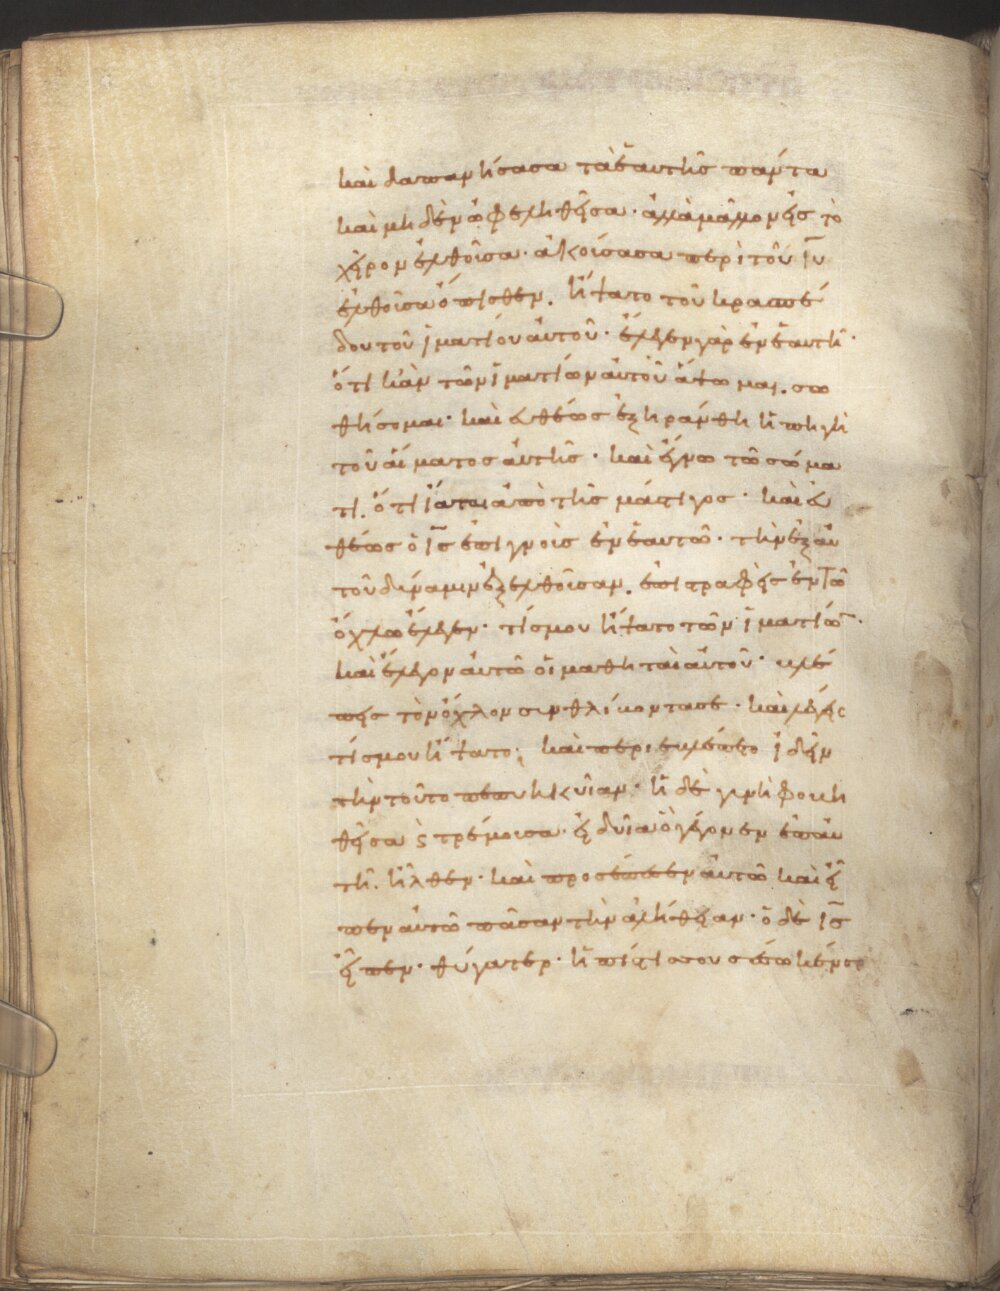 καὶ δαπανήσασα τὰ ἑαυτῆς πάντα
καὶ μηδὲν ὠφεληθεῖσα· ἀλλὰ μᾶλλον εἰς τὸ
χεῖρον ἐλθοῦσα· ἀκούσασα περὶ τοῦ ιυ
ἐλθοῦσα ὄπισθεν. ἥψατο τοῦ κρασπέ
δου τοῦ ἱματίου αὐτοῦ· ἔλεγεν γὰρ ἐν ἑαυτῆ·
ὅτι κἂν τῶν ἱματίων αὐτοῦ ἅψωμαι. σω
θήσομαι· καὶ εὐθέως ἐξηράνθη ἡ πηγὴ
τοῦ αἵματος αὐτῆς· καὶ ἔγνω τῶ σώμα
τι. ὅτι ἴαται ἀπὸ τῆς μάστιγος· καὶ εὐ
θέως ὁ ις ἐπιγνοὺς ἐν ἑαυτῶ· τὴν ἐξ αὐ
τοῦ δύναμιν ἐξελθοῦσαν. ἐπιστραφεὶς ἐν τῶ
ὄχλω ἔλεγεν· τίς μου ἥψατο τῶν ἱματίω̅·
καὶ ἔλεγον αὐτῶ οἱ μαθηταὶ αὐτοῦ· βλέ
πεις τὸν ὄχλον συνθλίβοντά σε· καὶ λέγεις
τίς μου ἥψατο; καὶ περιεβλέπετο ἰδεῖν
τὴν τοῦτο ποιήσασαν· ἡ δὲ γυνὴ φοβη
θεῖσα ϛ τρέμουσα· εἰδυῖα ὃ γέγονεν ἐπ αὐ
τῆ. ἦλθεν· καὶ προσέπεσεν αὐτῶ καὶ εἶ
πεν αὐτῶ πᾶσαν τὴν ἀλήθειαν· ὁ δὲ ις
εἶπεν· θύγατερ· ἡ πίστις σου σέσωκέν σε